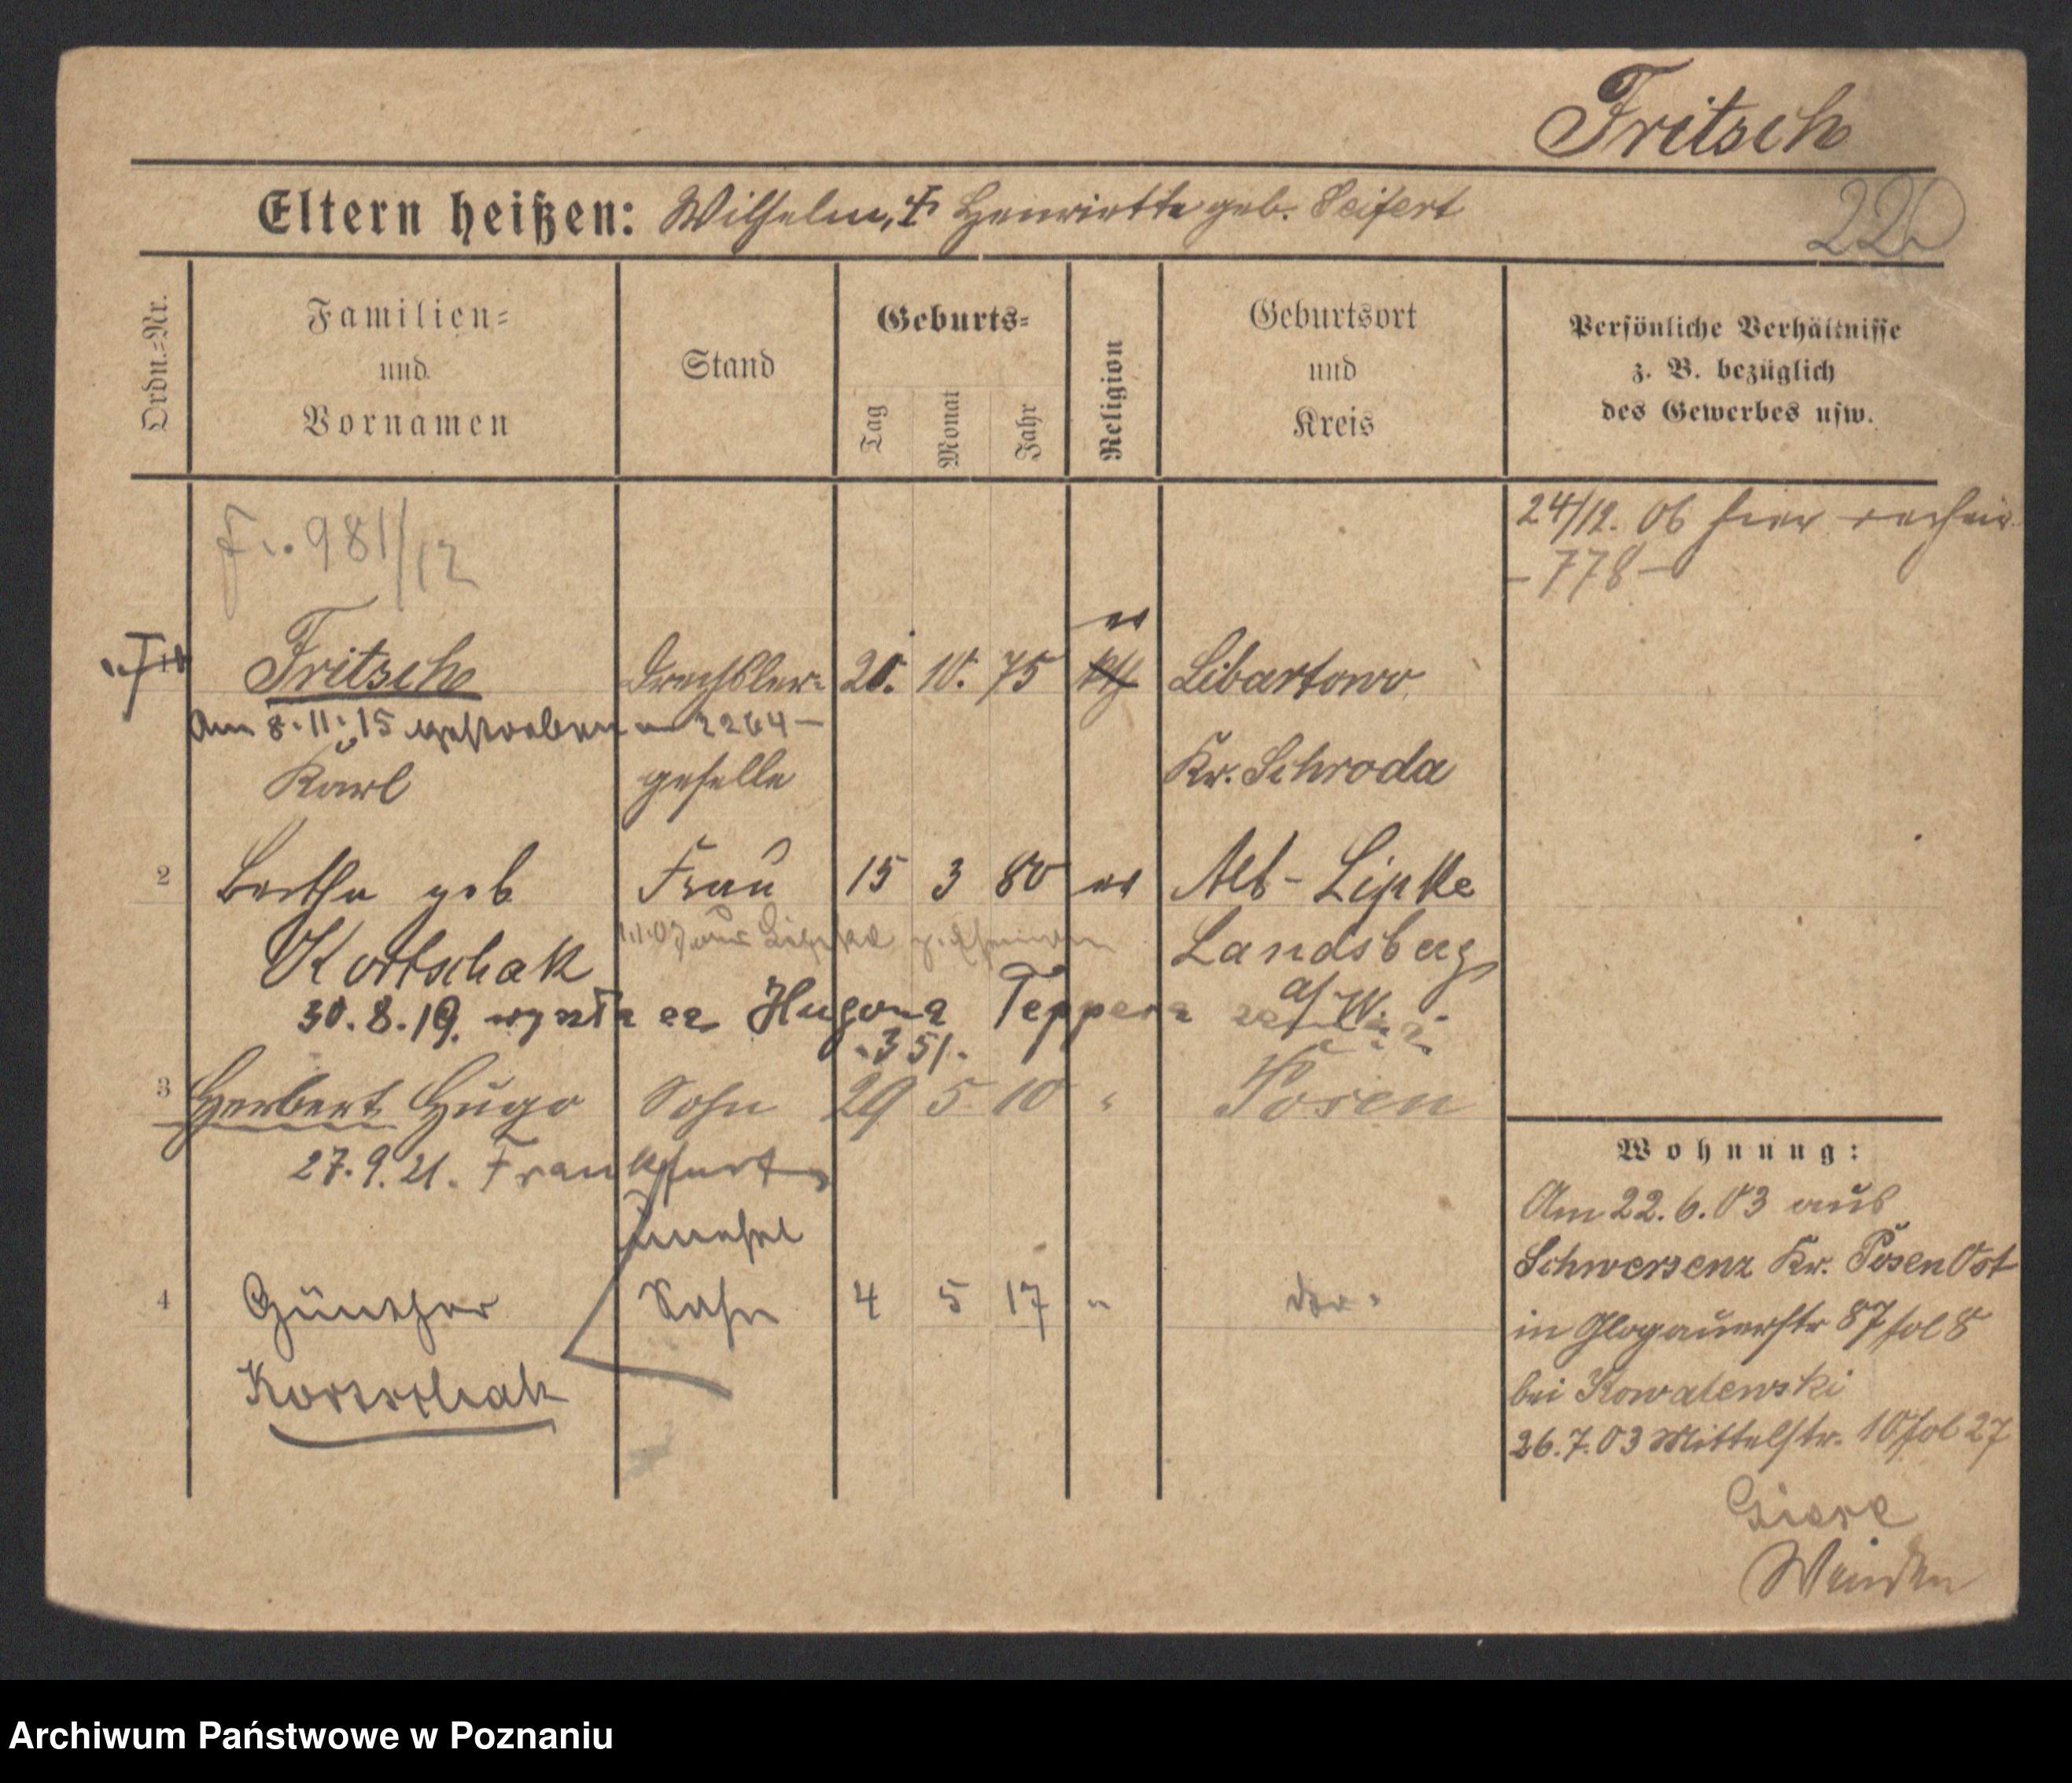 Fritsch
Eltern heißen: Wilhelm, † Henriette geb. Seifert
220
Ordn.-Nr.
Familien-
und
Vornamen
Stand
Geburts-
Tag
Monat
Jahr
Religion
Geburtsort
und
Kreis
Persönliche Verhältnisse
z. B. bezüglich
des Gewerbes usw.
24/12. 06 hier
- 778 -
981/12
Fritsch Drechsler- 20. 10. 75 ev Libartowo
Am 8.11.15 gestorben 2264 -
Karl geselle Kr. Schroda
2 Bertha geb Frau 15 3 80 ev Alt-Lipke
Kortschak Landsberg
1.1.07 aus
a/W.
30.8.19. wyszła za Hugona Teppera
.351.
3 Herbert Hugo Sohn 29 5 10 " Posen
27.9.21. Frankfurt
unehel
4 Günther Sohn 4 5 17 "
Kortschak
Wohnung:
Am 22.6.03 aus
Schwersenz Kr. Posen Ost
in Glogauerstr 87 fol 8
bei Kowalewski
26.7.03 Mittelstr. 10 fol 27
Archiwum Państwowe w Poznaniu